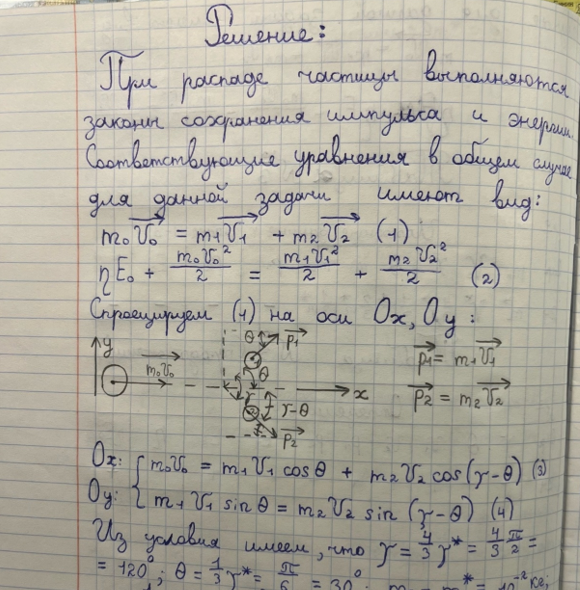 Решение:
При распаде частицы выполняются
законы сохранения импульса и энергии.
Соответствующие уравнения в общем случае
для данной задачи имеют вид:
m₀v⃗₀ = m₁v⃗₁ + m₂v⃗₂ (1)
ηE₀ + m₀v₀²/2 = m₁v₁²/2 + m₂v₂²/2 (2)
Спроецируем (1) на оси Ox, Oy:
y θ p⃗₁ p⃗₁ = m₁v⃗₁
m₀v⃗₀ θ x
γ γ-θ p⃗₂ = m₂v⃗₂
p⃗₂
Ox: { m₀v₀ = m₁v₁ cosθ + m₂v₂ cos(γ-θ) (3)
Oy: { m₁v₁ sinθ = m₂v₂ sin (γ-θ) (4)
Из условия имеем, что γ = 4/3 γ* = 4/3 π/2 =
= 120°; θ = 1/3 γ* = π/6 = 30°;